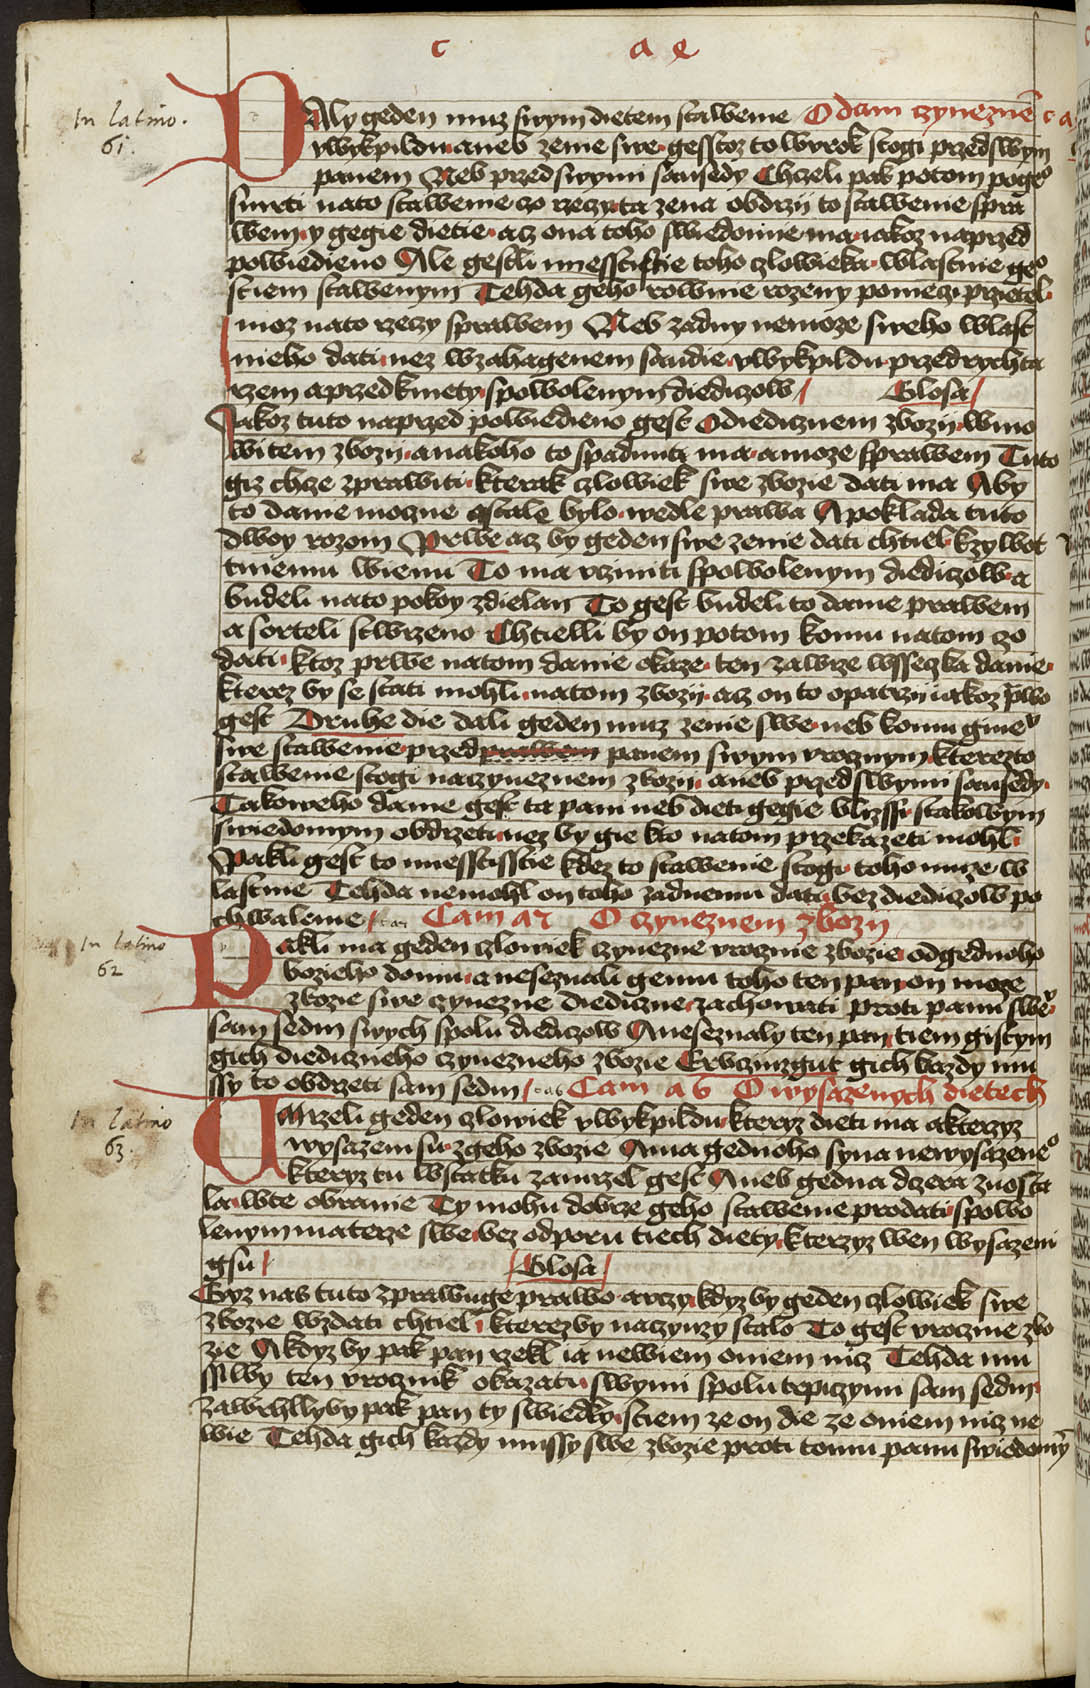 c a e
In latino.
61.
DAly geden muz swym dietem stawenie O dani czynezne c a
vwykpildu aneb zenie swe gesstoz to wyrok stogi przed swym
panem Neb przed swymi sausedy Chczeli pak potom po
smrti nato stawenie czo rzeczy ta zena obdrzij to stawenie spra
wem y gegie dietie acz ona toho swiedomie ma iakoz naprzed
powiedieno Ale gestli miesstistie toho czlowieka wlastnie
stiem stawenym Tehda geho rownie rozeny pomeczi
moz nato rzeczy sprawem Neb zadny nemoze sweho wlast
nieho dati nez wzahagenem saudie vwykpildu przed rychta
rzem a przed kmety spowolenym diediczow Glosa
Jakoz tuto naprzed powiedieno gest O diedicznem zbozij wmo
witem zbozij a nakoho to spadnuti ma a moze sprawem Tuto
giz chcze zprawiti kterak czlowiek swe zbozie dati ma Aby
to danie moczne a stale bylo wedle prawa A poklada tuto
dwoy rozom Prwe acz by geden swe zenie dati chtiel kzywot
tniemu wienu To ma vcziniti spowolenym diediczow a
budeli nato pokoy zdielan To gest budeli to danie prawem
a sorteli stwrzeno Chtielli by on potom komu natom czo
dati ktoz prwe natom danie okaze ten zawrze wsseczka danie
kterez by se stati mohli natom zbozij acz on to opatrzij iakoz prwo
gest Druhe die dali geden muz zenie swe neb komu
swe stawenie przed panem swym vrocznym kterezto
stawenie stogi na czyneznem zbozij aneb przed swymi sausedy
Takoweho danie gest ta pani neb dieti gegie blizssi stakowym
swiedomym obdrzeti nez by gie kto natom przekazeti mohl
Pakli gest to miesstisstie kdez to stawenie stogi toho muze w
lastnie Tehda nemohl on toho zadnemu dati bez diediczow po
chwalenie Cam a O czyneznem zbozij
In latino
62
Pakli ma geden czlowiek czynezne vrocznie zbozie od gednoho
bozieho domu a neseznali gemu toho ten pan on moze
zbozie swe czynezne dieditzne zachowati proti panu
sam sedm swych spolu diediczow A neseznaly ten pan tiem gistym
gich diediczneho czynezneho zbozie Erbczinzgut gich kazdy mu
ssy to obdrzeti sam sedm Cam a 6 O wysazenych dietech
In latino
63.
UMrzeli geden czlowiek vwykpildu kteryz dieti ma a kterzyz
wysazeni su zgeho zbozie A ma gednoho syna newysazene
kteryz tu wstatku zamrzel gest Aneb gedna dczera zuosta
la wte obranie Ty mohu dobrze geho stawenie prodati spowo
lenym materze swe bez odporu tiech diety kterzyz wen wysazeni
gsu Glosa
Gyz nas tuto zprawuge prawo a rczy kdyz by geden czlowiek swe
zbozie wzdati chtiel kterezby na czynzy stalo To gest vrocznie zbo
zie A kdyz by pak pan rzekl ia newiem o niem nicz Tehda mu
ssil by ten vrocznik okazati swymi spolu tepiczymi sam sedm
zawrhllyby pak pan ty swiedky stiem ze on die ze o niem nicz ne
wie Tehda gich kazdy mussy swe zbozie proti tomu panu swiedomy